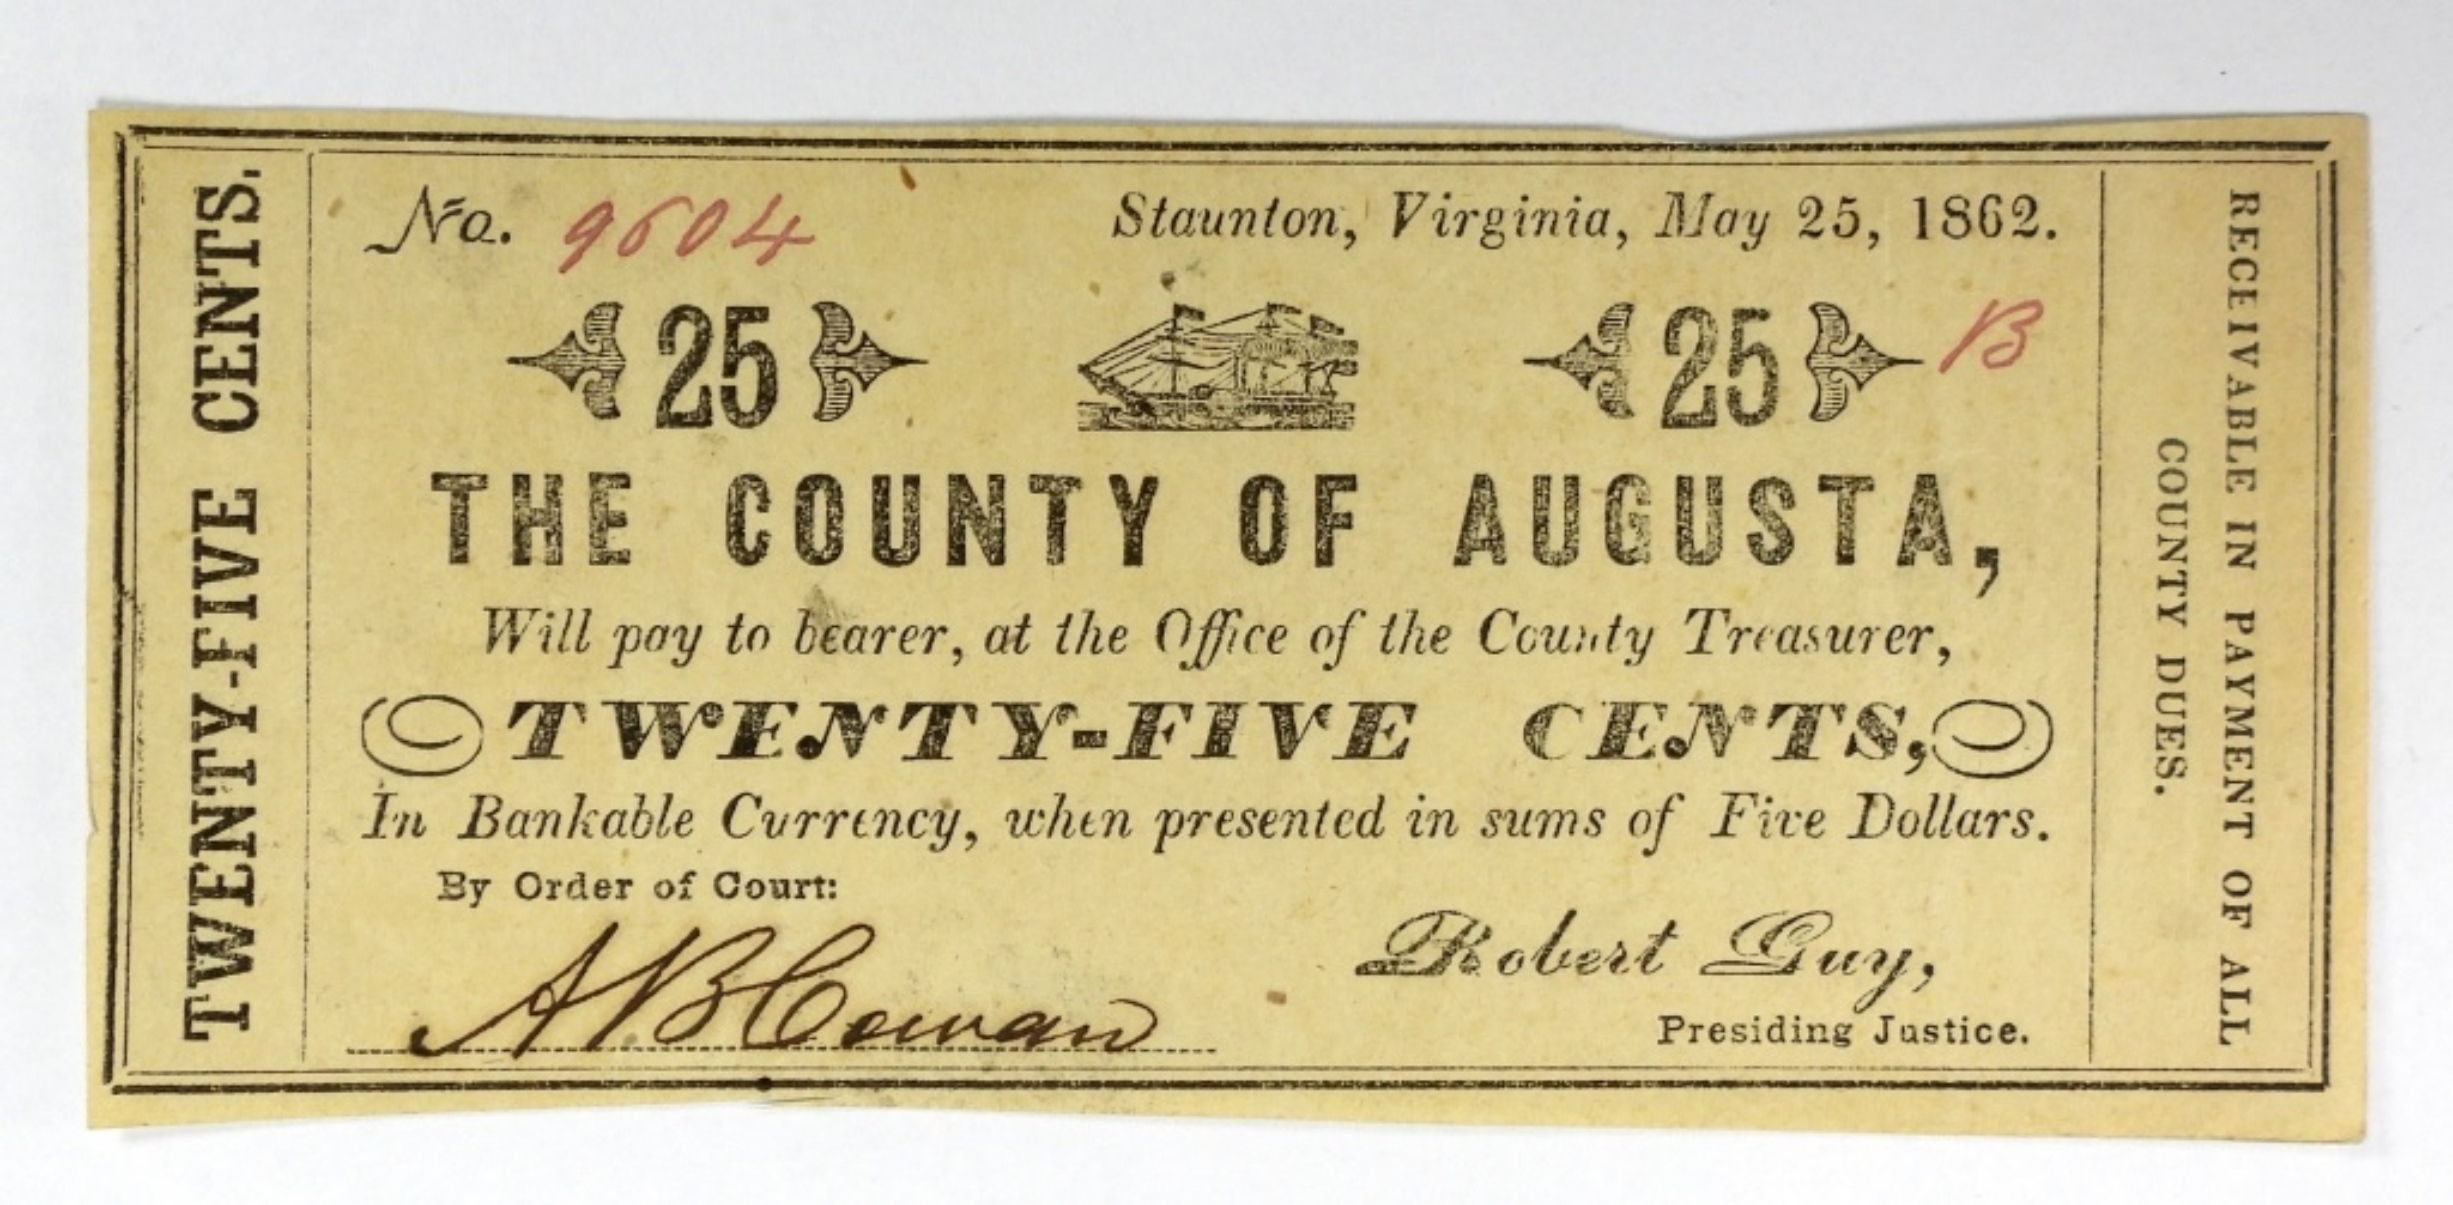 TWENTY-FIVE CENTS.
No. 9604
Staunton, Virginia, May 25, 1862.
25
25
B
THE COUNTY OF AUGUSTA,
Will pay to bearer, at the Office of the County Treasurer,
TWENTY-FIVE CENTS,
In Bankable Currency, when presented in sums of Five Dollars.
By Order of Court:
A B Cowan
Robert Guy,
Presiding Justice.
RECEIVABLE IN PAYMENT OF ALL
COUNTY DUES.